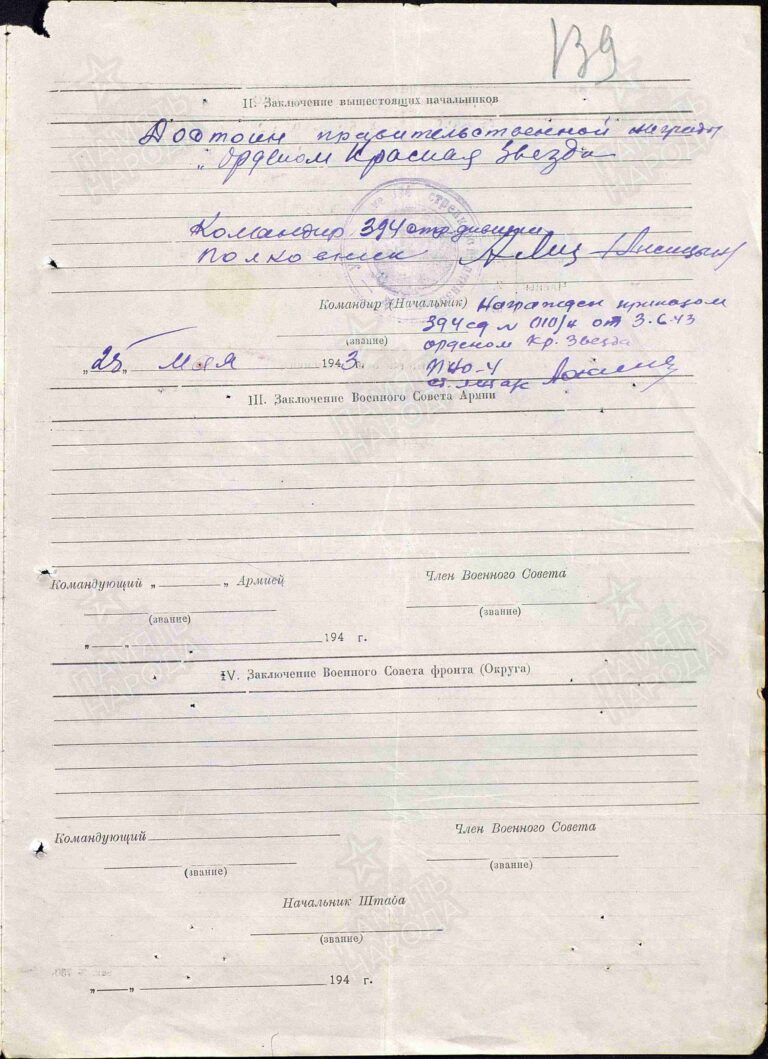 139
II. Заключение вышестоящих начальников
Достоин правительственной награды
„Орденом Красная Звезда
Командир 394 стр. дивизии
Полковник Лисицын
Командир (Начальник) Награжден приказом
394 сд № 010/н от 3.6.43
(звание) орденом Кр. Звезда
„25„ мая 1943г. ПНО-4
III. Заключение Военного Совета Армии
Командующий „ „ Армией Член Военного Совета
(звание) (звание)
„ „ 194 г.
IV. Заключение Военного Совета фронта (Округа)
Командующий Член Военного Совета
(звание) (звание)
Начальник Штаба
(звание)
„ „ 194 г.
ПАМЯТЬ НАРОДА